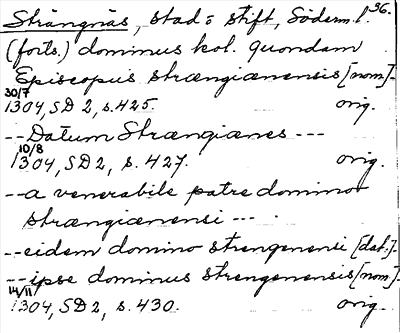 Strängnäs, stad o stift, Söderm. l. 36.
(forts.) dominus kol. quondam
Episcopus strængiænensis [nom.]-
30/7
1304, SD 2, s. 425. orig.
--Datum Strængiænes ---
10/8
1304, SD 2, s. 427. orig.
--a venerabile patre domino
strængiænensi ---
--eidem domino strengenensi [dat.]-
--ipse dominus strengenensis [nom.]-
14/11
1304, SD 2, s. 430. orig.